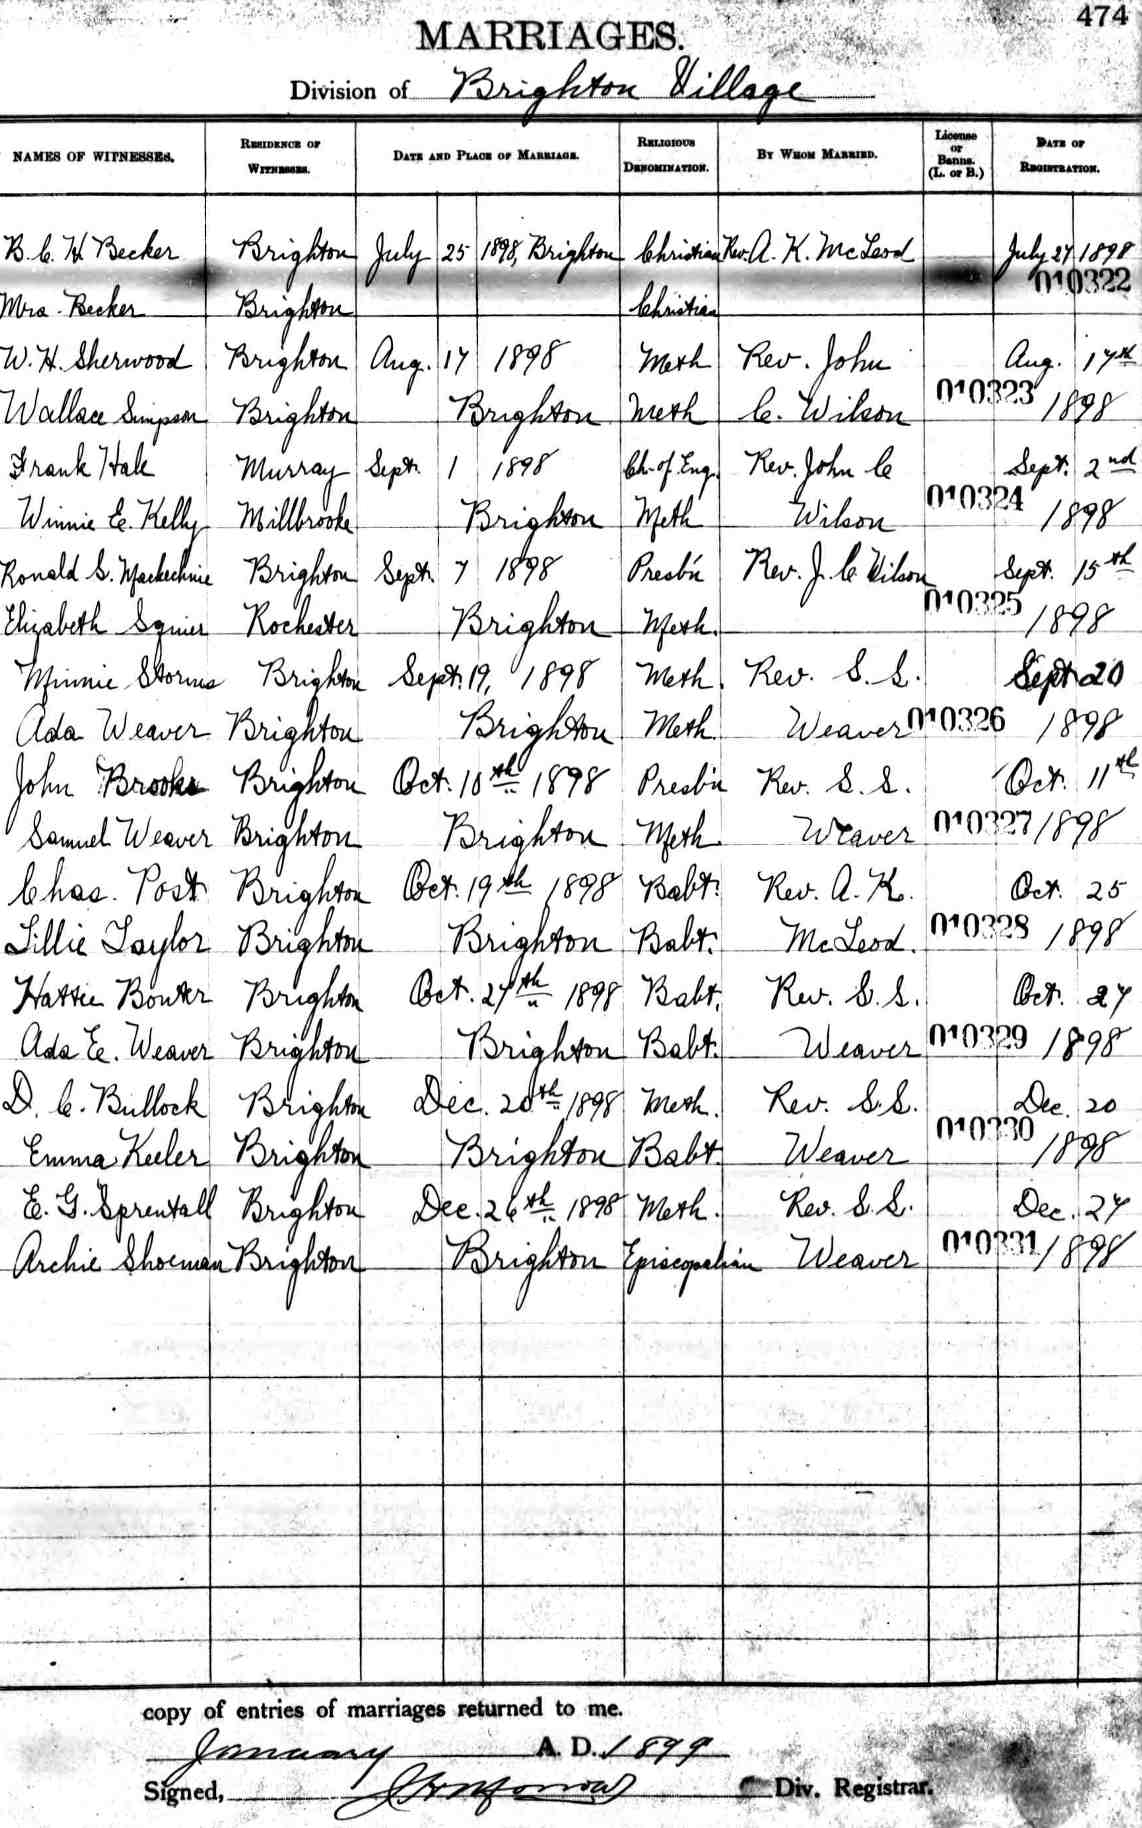 474
MARRIAGES.
Division of Brighton Village
NAMES OF WITNESSES. RESIDENCE OF WITNESSES. DATE AND PLACE OF MARRIAGE. RELIGIOUS DENOMINATION. BY WHOM MARRIED. License or Banns. (L. or B.) DATE OF REGISTRATION.
B. C. H Becker Brighton July 25 1898, Brighton Christian Rev. A. K. McLeod July 27 1898
010322
Mrs. Becker Brighton Christian
W. H. Sherwood Brighton Aug. 17 1898 Meth Rev. John Aug. 17th
Wallace Simpson Brighton Brighton Meth C. Wilson 010323 1898
Frank Hale Murray Sept. 1 1898 Ch. of Eng. Rev. John C Sept. 2nd
Winnie E. Kelly Millbrooke Brighton Meth Wilson 010324 1898
Ronald S. Mackechnie Brighton Sept. 7 1898 Presb'n Rev. J. C Wilson Sept. 15th
Elizabeth Squier Rochester Brighton Meth. 010325 1898
Minnie Storms Brighton Sept. 19, 1898 Meth. Rev. S. S. Sept 20
Ada Weaver Brighton Brighton Meth. Weaver 010326 1898
John Brooks Brighton Oct. 10th 1898 Presb'n Rev. S. S. Oct. 11th
Samuel Weaver Brighton Brighton Meth. Weaver 010327 1898
Chas. Post Brighton Oct. 19th 1898 Babt. Rev. A. K. Oct. 25
Lillie Taylor Brighton Brighton Babt. McLeod. 010328 1898
Hattie Bonter Brighton Oct. 27th 1898 Babt. Rev. S. S. Oct. 27
Ada E. Weaver Brighton Brighton Babt. Weaver 010329 1898
D. C. Bullock Brighton Dec. 20th 1898 Meth. Rev. S.S. Dec. 20
Emma Keeler Brighton Brighton Babt. Weaver 010330 1898
E. G. Sprentall Brighton Dec. 26th 1898 Meth. Rev. S.S. Dec. 27
Archie Shoeman Brighton Brighton Episcopalian Weaver 010331 1898
copy of entries of marriages returned to me.
January A. D. 1899
Signed, Div. Registrar.